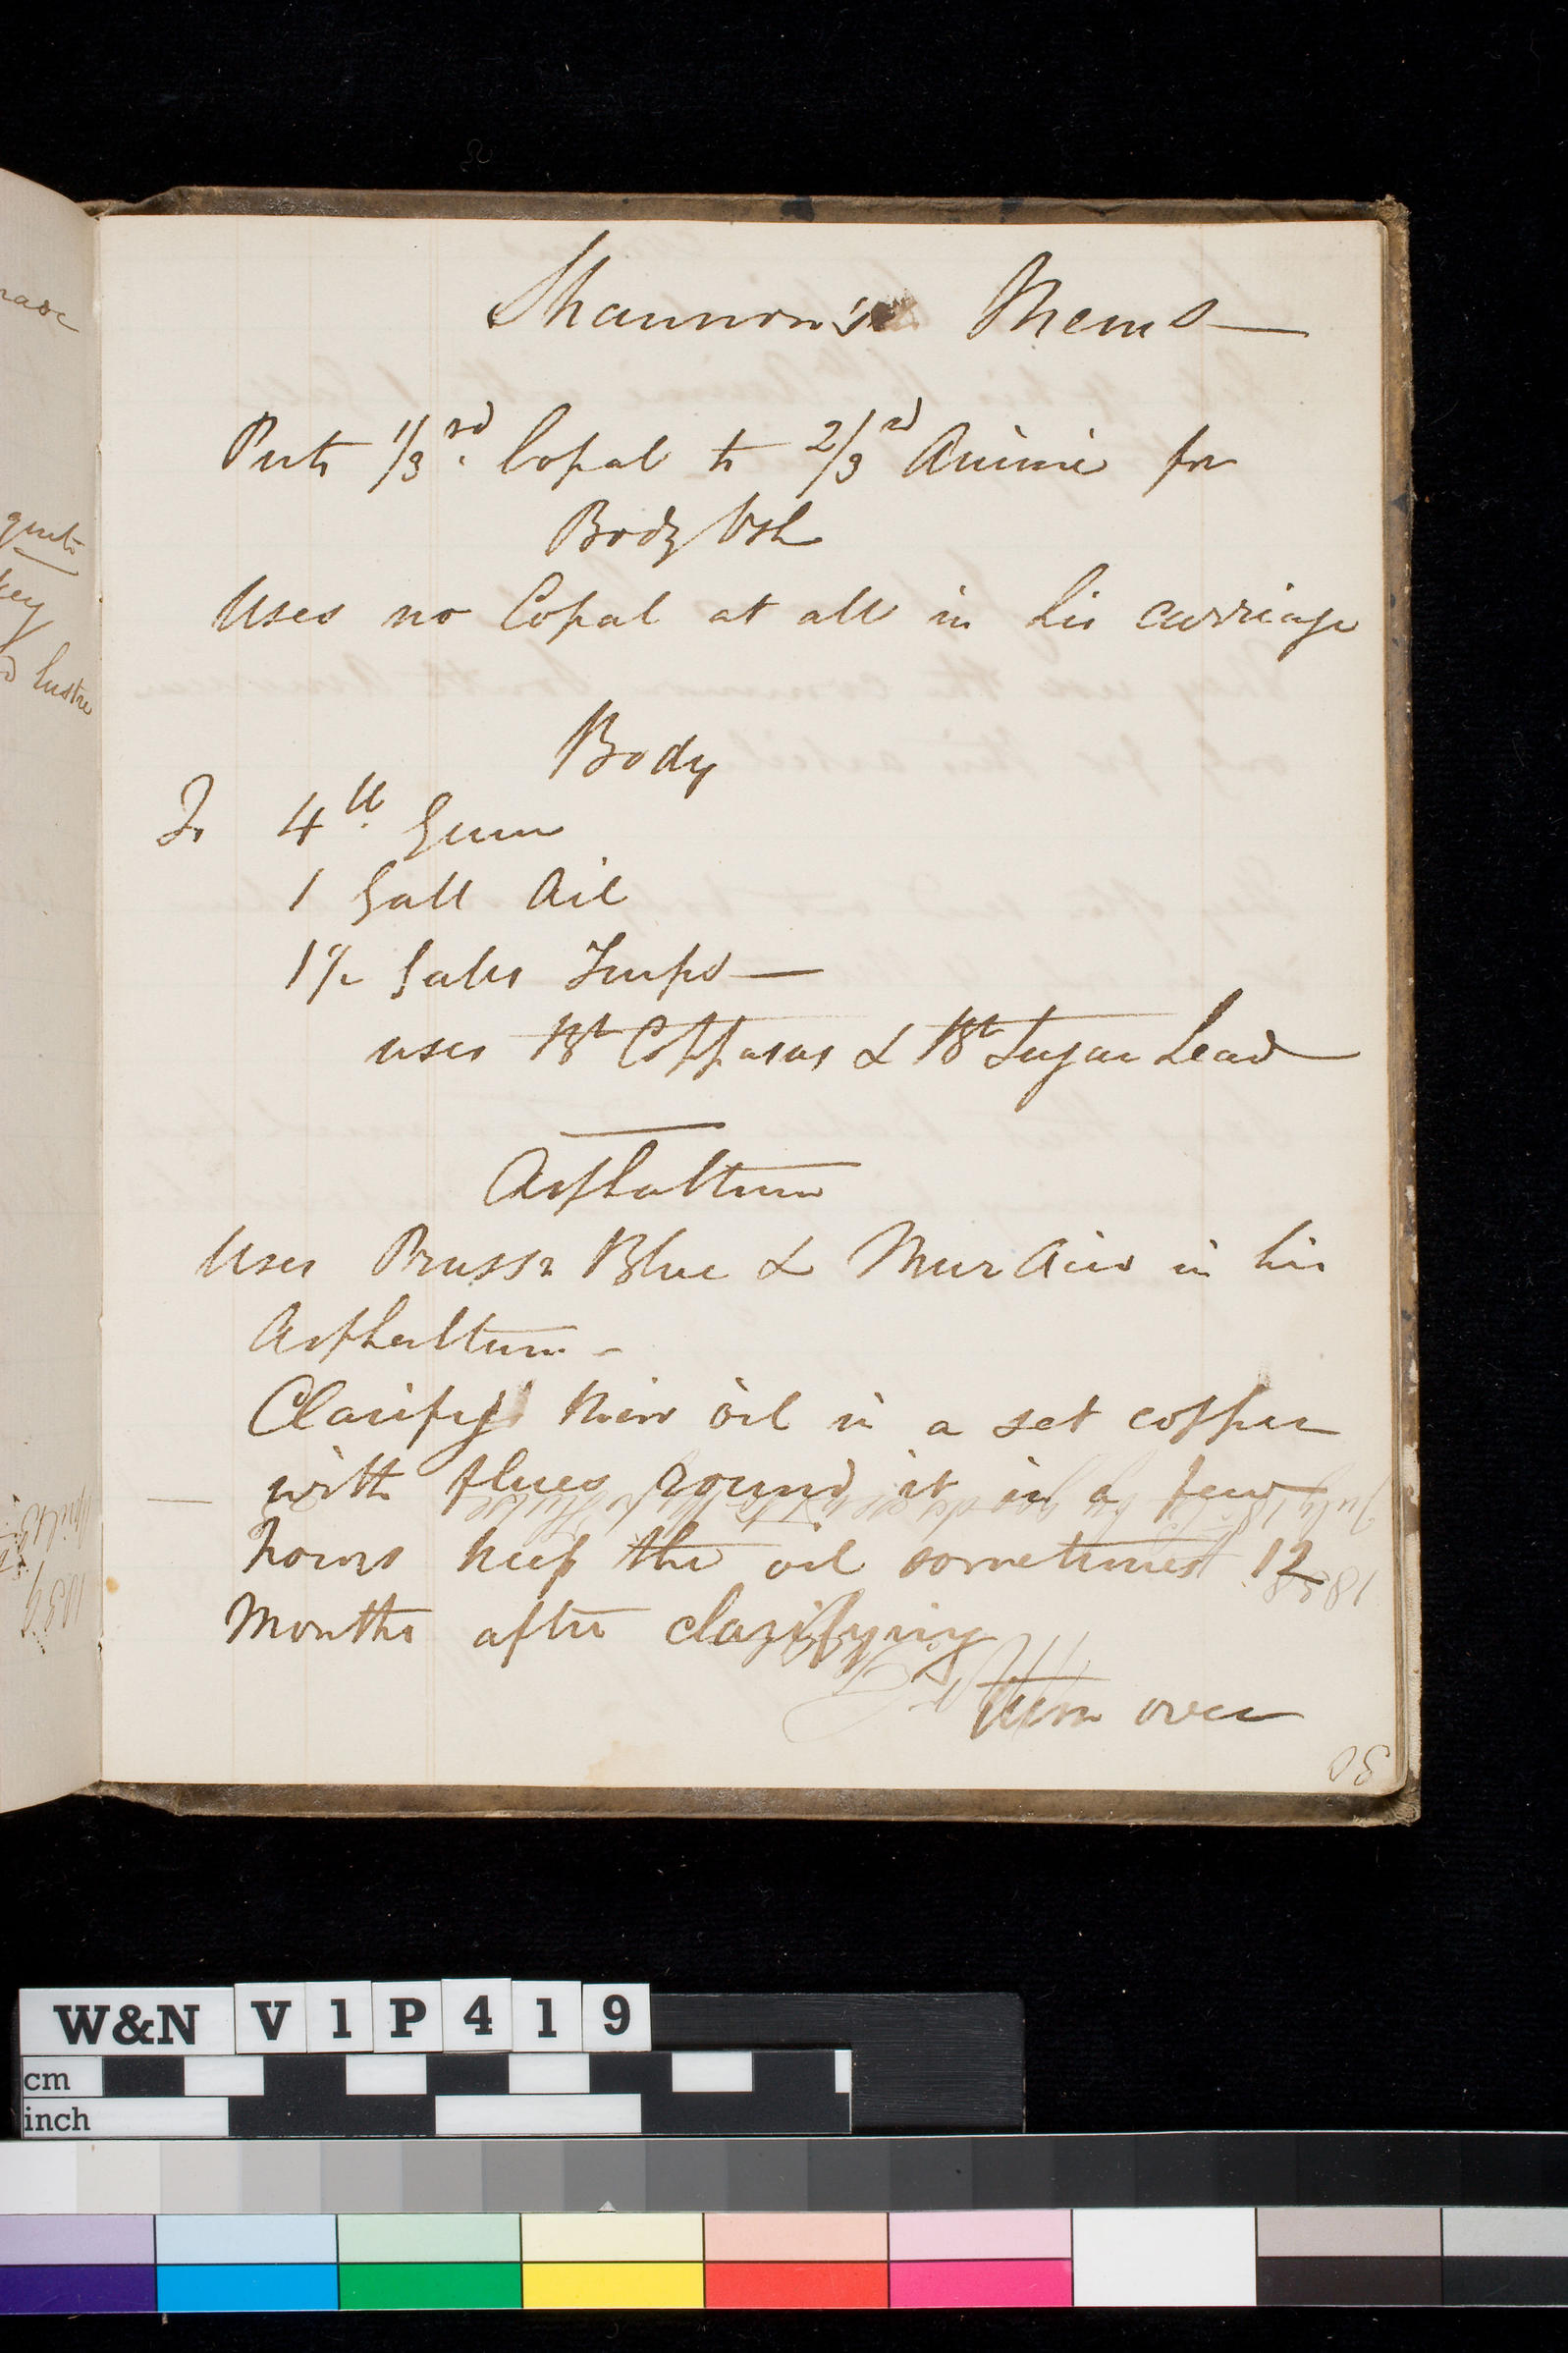 Shannon's Mems
Puts 1/3rd Copal to 2/3rd Animi for
Body Vsh
Uses no Copal at all in his carriage
Body
To 4 lb Gum
1 Gall Oil
1 1/2 Galls Turps
uses Bt Copperas & Bt Sugar Lead
Asphaltum
Uses Pruss n Blue & Mur Acid in his
Asphaltum -
Clarifys their oil in a set copper
with flues round it in a few
hours keep the oil sometimes 12
Months after clarifying
Turn over
30
rave
quite
key
d lustre
1839
1838
W&N V1P419
cm
inch